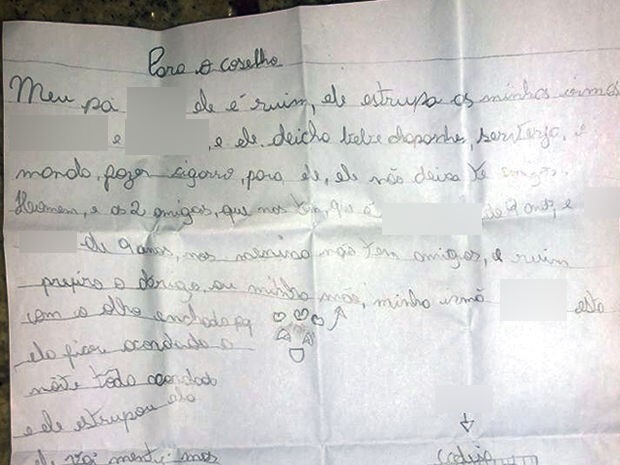 Para o coselho
Meu pa ele é ruim, ele estrupa as minhas irmas
e , e ele deicha bebe chapanhe, serverja, e
manda, fazer sigarro, para ele, ele não deixa te amigos.
Homem, e as 2 amigas, que nos tem, que é de 9 anos, e
de 9 anos, mas menino não tem amigos, é ruim
prefiro o abrigo, ou minha mãe, minha irmã esta
com o olho enchado pq
ela ficou acordada a
noite toda acordada
e ele estrupou ela
ele vai menti mas